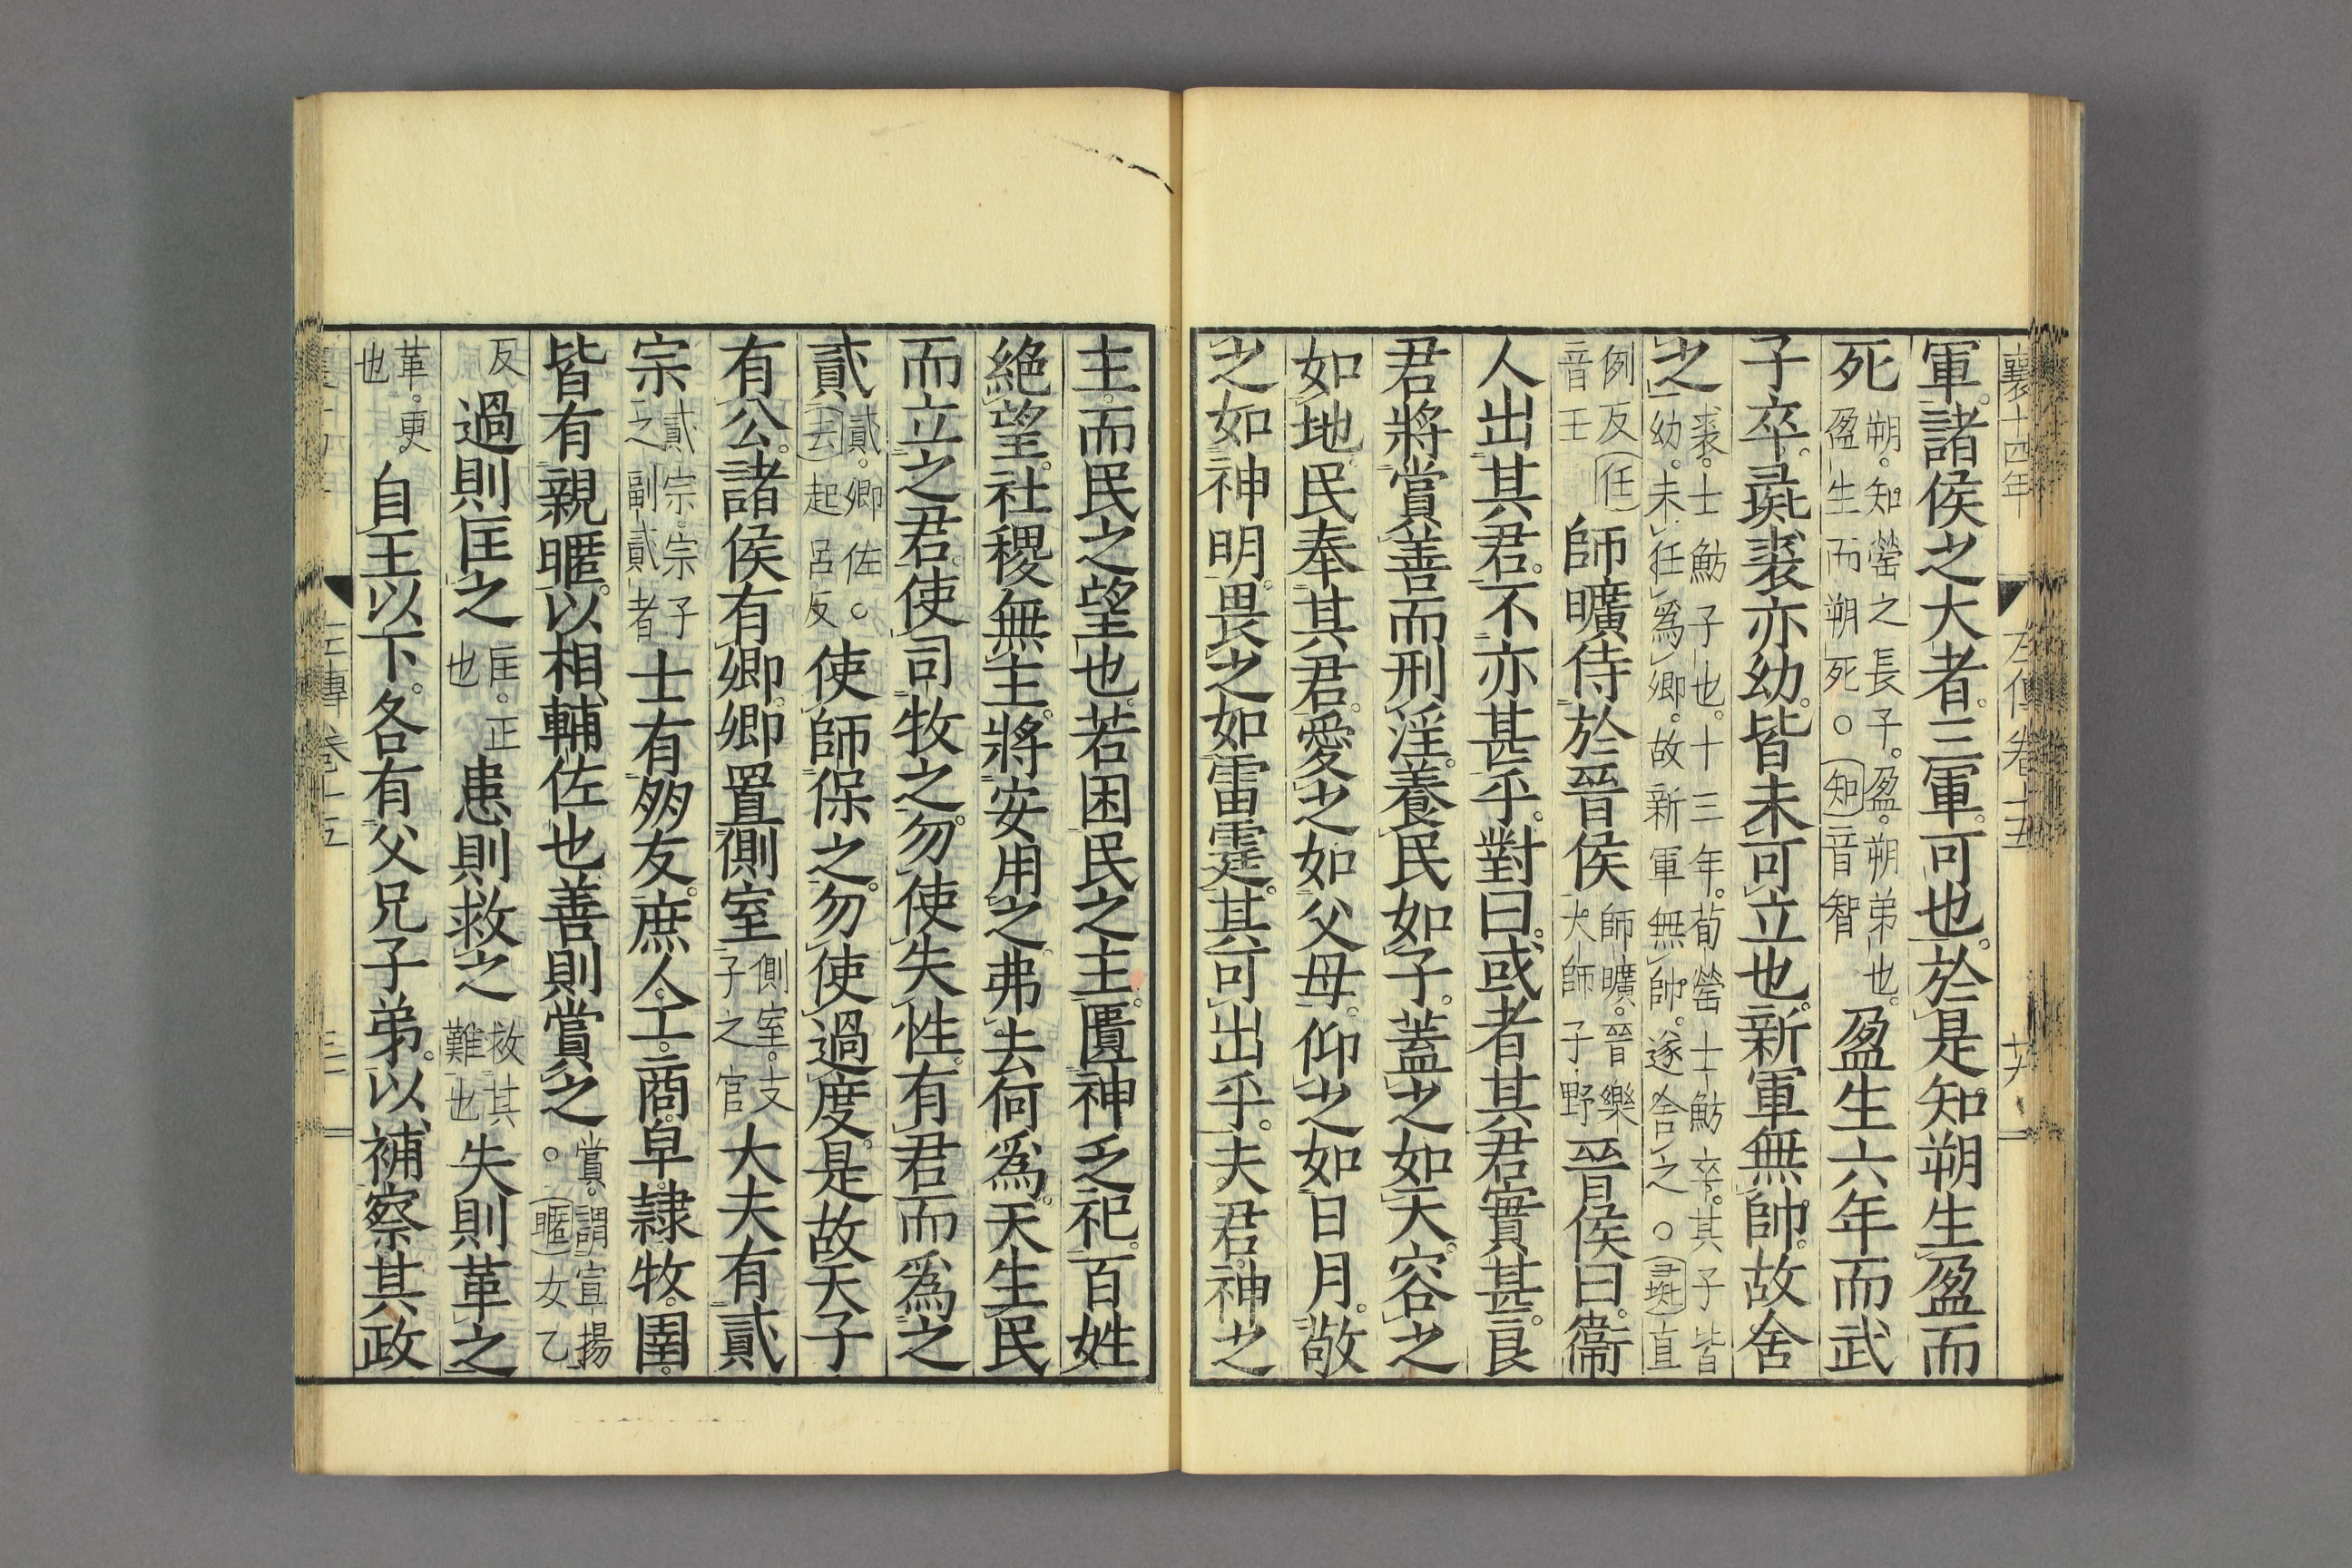 襄十四年 左傳卷十五
軍。諸侯之大者。三軍。可也。於是。知朔生盈而
死朔。知罃之長子。盈。朔弟也。盈生而朔死。○知音智盈生六年而武
子卒。彘裘亦幼。皆未可立也。新軍無帥。故舍
之裘。士魴子也。十三年。荀罃士魴卒。其子皆幼。未任爲卿。故新軍無帥。遂舍之○彘直
例反任音壬師曠侍於晉侯師曠。晉樂大師子野晉侯曰。衞
人出其君。不亦甚乎。對曰。或者其君實甚。良
君將賞善而刑淫。養民如子。蓋之如天。容之
如地。民奉其君。愛之如父母。仰之如日月。敬
之如神明。畏之如雷霆。其可出乎。夫君。神之
主。而民之望也。若困民之主。匱神乏祀。百姓
絕望。社稷無主。將安用之。弗去何爲。天生民
而立之君。使司牧之。勿使失性。有君而爲之
貳貳。卿佐。○去起呂反使師保之。勿使過度。是故天子
有公。諸侯有卿。卿置側室側室。支子之官大夫有貳
宗貳宗。宗子之副貳者士有朋友。庶人。工。商。皁。隷。牧。圉。
皆有親暱。以相輔佐也善則賞之賞。謂宣揚。○暱女乙
反過則匡之匡。正也患則救之救其難也失則革之
革。更也自王以下。各有父兄子弟。以補察其政
左傳卷十五